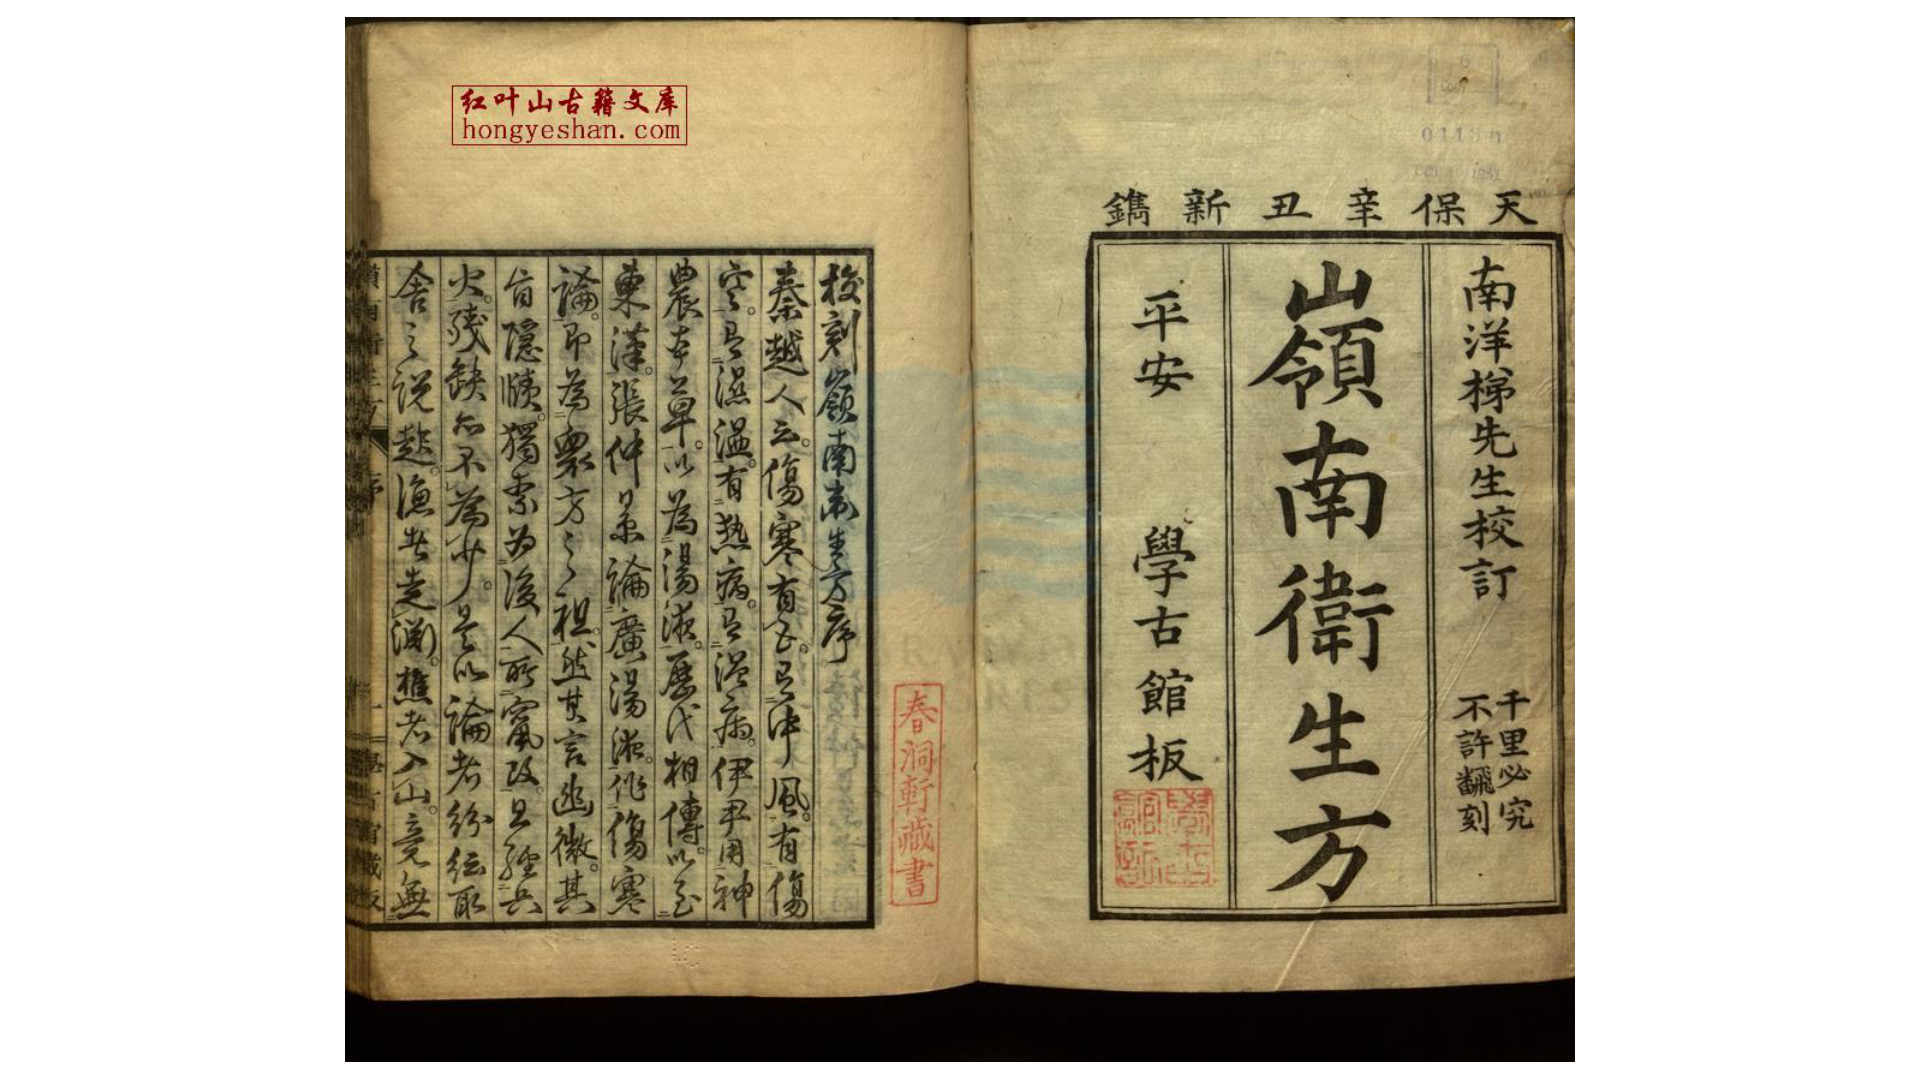 红叶山古籍文库
hongyeshan.com
天保辛丑新鐫
南洋梯先生校訂
千里必究
不許飜刻
嶺南衛生方
平安 學古館板
春洞軒藏書
校刻嶺南衛生方序
秦越人云。傷寒有五。有中風。有傷
寒。有濕溫。有熱病。有溫病。伊尹用神
農本草。以為湯液。歷代相傳。以至
東漢。張仲景論廣湯液。作傷寒
論。即為衆方之祖。然其言幽微。其
旨隱賾。獨柰為後人所竄改。且經兵
火。殘缺亦不為少。是以論者紛紜取
舍之說趍。漁者走淵。樵者入山。竟無